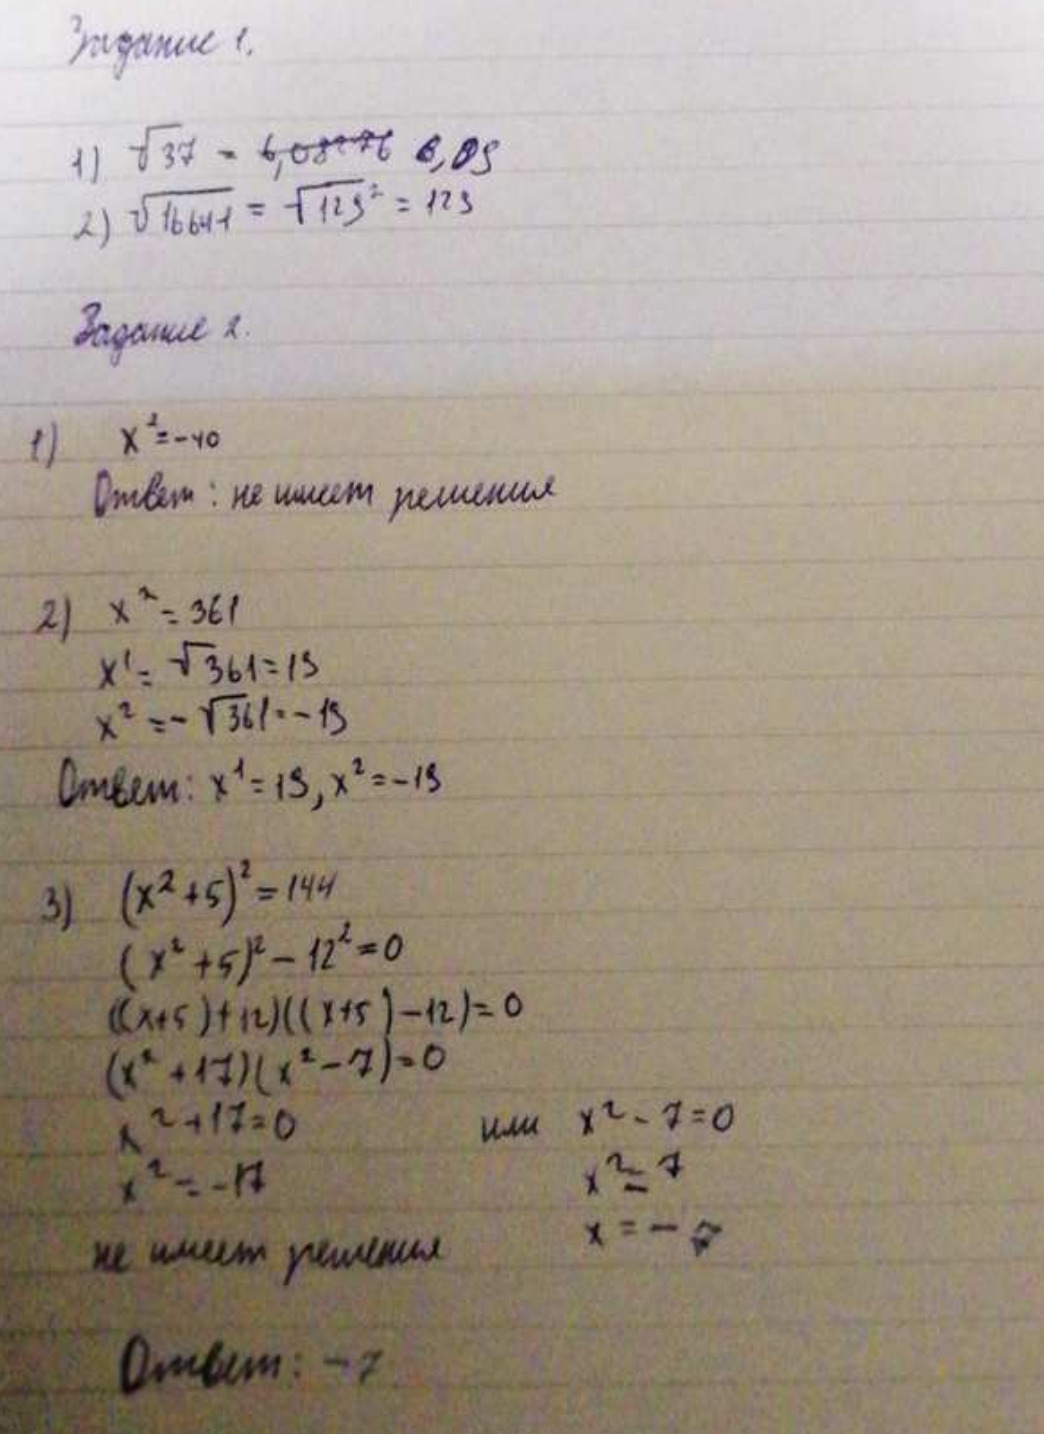 Задание 1.
1) √37 = 6,08276 6,09
2) √16641 = √129² = 129
Задание 2.
1) x²=-40
Ответ: не имеет решения
2) x² = 361
x¹ = √361 = 19
x² = -√361 = -19
Ответ: x¹ = 19, x² = -19
3) (x²+5)² = 144
(x²+5)² - 12² = 0
((x+5)+12)((x+5)-12) = 0
(x²+17)(x²-7) = 0
x²+17=0 или x²-7=0
x² = -17 x² = 7
x = -7
не имеет решения
Ответ: -7